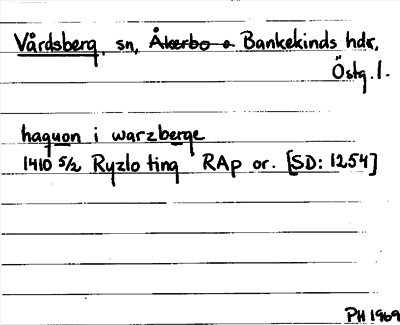 Vårdsberg, sn, Åkerbo o Bankekinds hdr,
Östg. l.
haquon i warzberge
1410 5/2 Ryzlo ting RAp or. [SD: 1254]
PH 1969